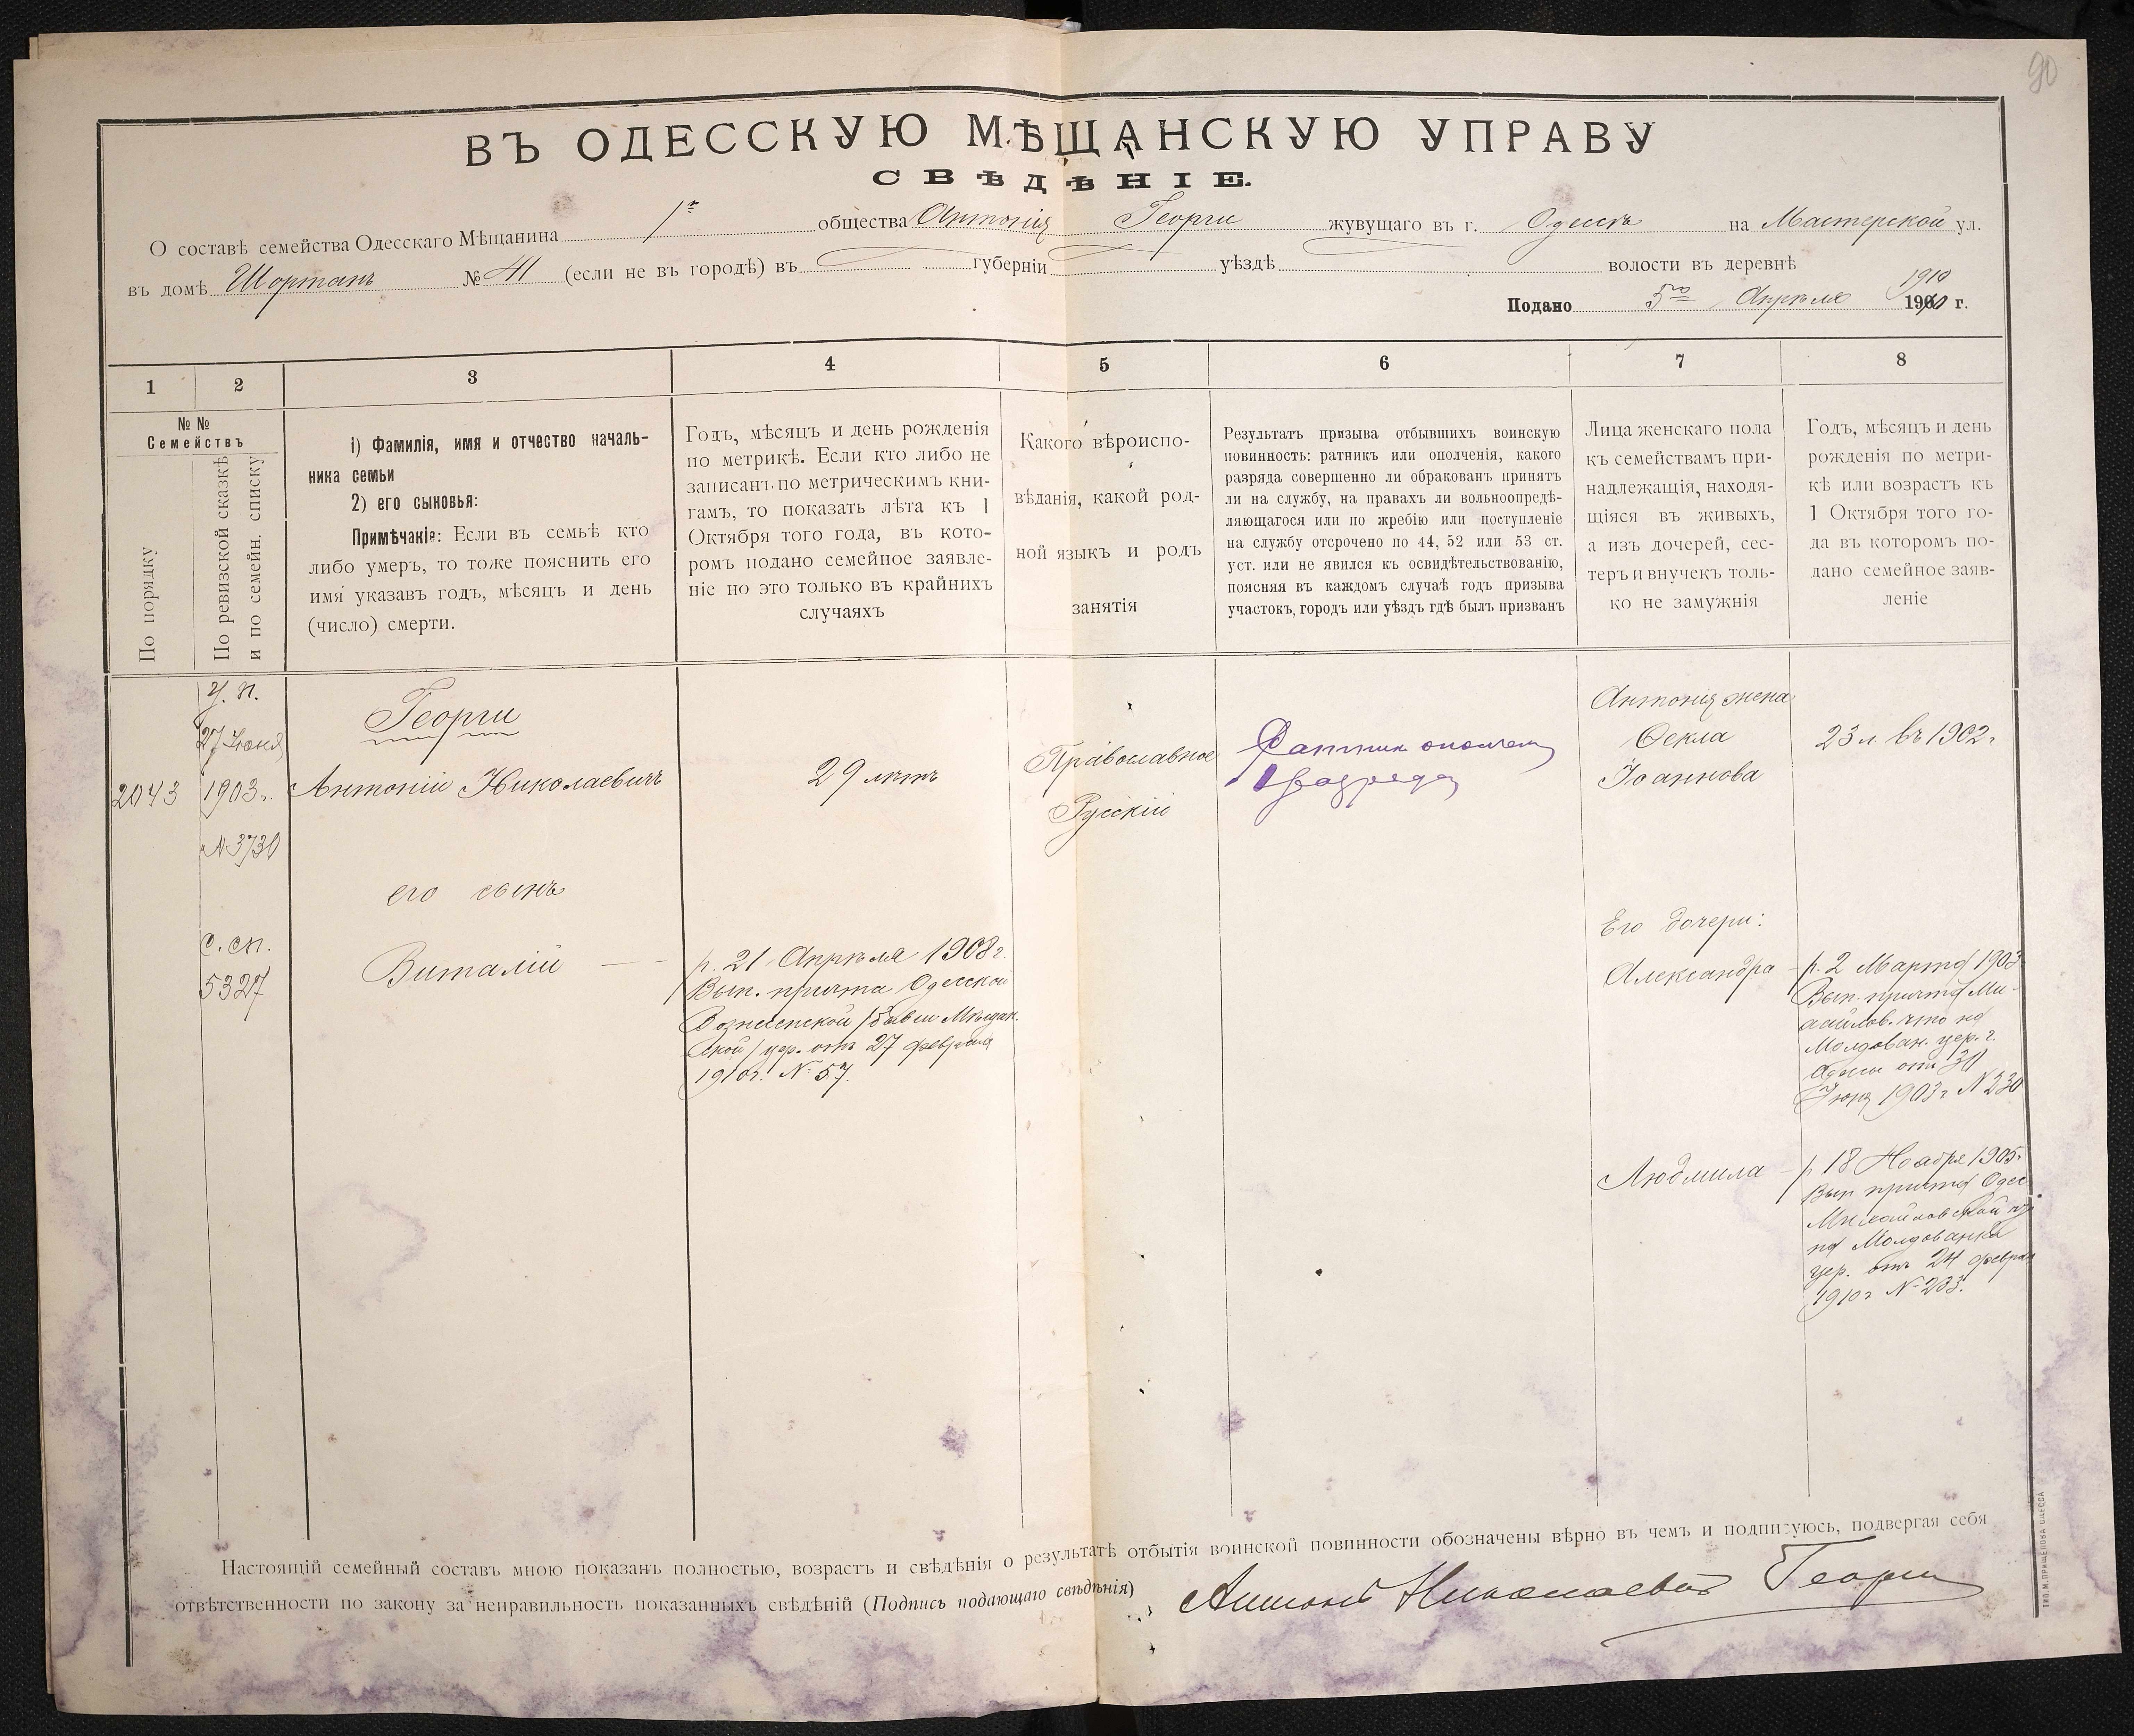 90
ВЪ ОДЕССКУЮ МѢЩАНСКУЮ УПРАВУ
СВѢДѢНІЕ.
О составѣ семейства Одесскаго Мѣщанина 1го общества Антонія Георги жувущаго въ г. Одессѣ на Мастерской ул.
въ домѣ Шортанъ № 41 (если не въ городѣ) въ губерніи уѣздѣ волости въ деревнѣ
1910
Подано 5го Апрѣля 190 г.
1 2 3 4 5 6 7 8
№ №
Семействъ
По порядку
По ревизской сказкѣ
и по семейн. списку
i) Фамилія, имя и отчество началь-
ника семьи
2) его сыновья:
Примѣчаніе: Если въ семьѣ кто
либо умеръ, то тоже пояснить его
имя указавъ годъ, мѣсяцъ и день
(число) смерти.
Годъ, мѣсяцъ и день рожденія
по метрикѣ. Если кто либо не
записанъ по метрическимъ кни-
гамъ, то показать лѣта къ 1
Октября того года, въ кото-
ромъ подано семейное заявле-
ніе но это только въ крайнихъ
случаяхъ
Какого вѣроиспо-
вѣданія, какой род-
ной языкъ и родъ
занятія
Результатъ призыва отбывшихъ воинскую
повинность: ратникъ или ополченія, какого
разряда совершенно ли обракованъ принятъ
ли на службу, на правахъ ли вольноопредѣ-
ляющагося или по жребію или поступленіе
на службу отсрочено по 44, 52 или 53 ст.
уст. или не явился къ освидѣтельствованію,
поясняя въ каждомъ случаѣ годъ призыва
участокъ, городъ или уѣздъ гдѣ былъ призванъ
Лица женскаго пола
къ семействамъ при-
надлежащія, находя-
щіяся въ живыхъ,
а изъ дочерей, сес-
теръ и внучекъ толь-
ко не замужнія
Годъ, мѣсяцъ и день
рожденія по метри-
кѣ или возрастъ къ
1 Октября того го-
да въ которомъ по-
дано семейное заяв-
леніе
2043
У. п.
27 Іюня
1903 г.
№ 3730
С. сп.
5327
Георги
Антоній Николаевичъ
29 лѣтъ
Православное
Русскій
Ратник ополчен
1 разряда
Антонія жена
Ѳекла
Іоаннова
23 л въ 1902 г
его сынъ
Виталій
р. 21 Апрѣля 1908 г.
Вып. причта Одесской
Вознесенской /бывш. Мѣщан.
ской/ цер. отъ 27 февраля
1910 г. № 57.
Его дочери:
Александра
р. 2 Марта 1903
Вып. причта Ми-
хайлов. что на
Молдован. цер. г.
Одессы отъ 30
Іюня 1903 г № 230
Людмила
р 18 Ноября 1905 г.
Вып причта Одес
Михайловской
на Молдованкѣ
цер. отъ 24 феврал
1910 г № 203.
Настоящій семейный составъ мною показанъ полностью, возрастъ и свѣдѣнія о результатѣ отбытія воинской повинности обозначены вѣрно въ чемъ и подписуюсь, подвергая себя
отвѣтственности по закону за неправильность показанныхъ свѣдѣній (Подпись подающаго свѣдѣнія) Антонъ Николаевичъ Георги
ТИП. М. ПРИЩЕПОВА ОДЕССА